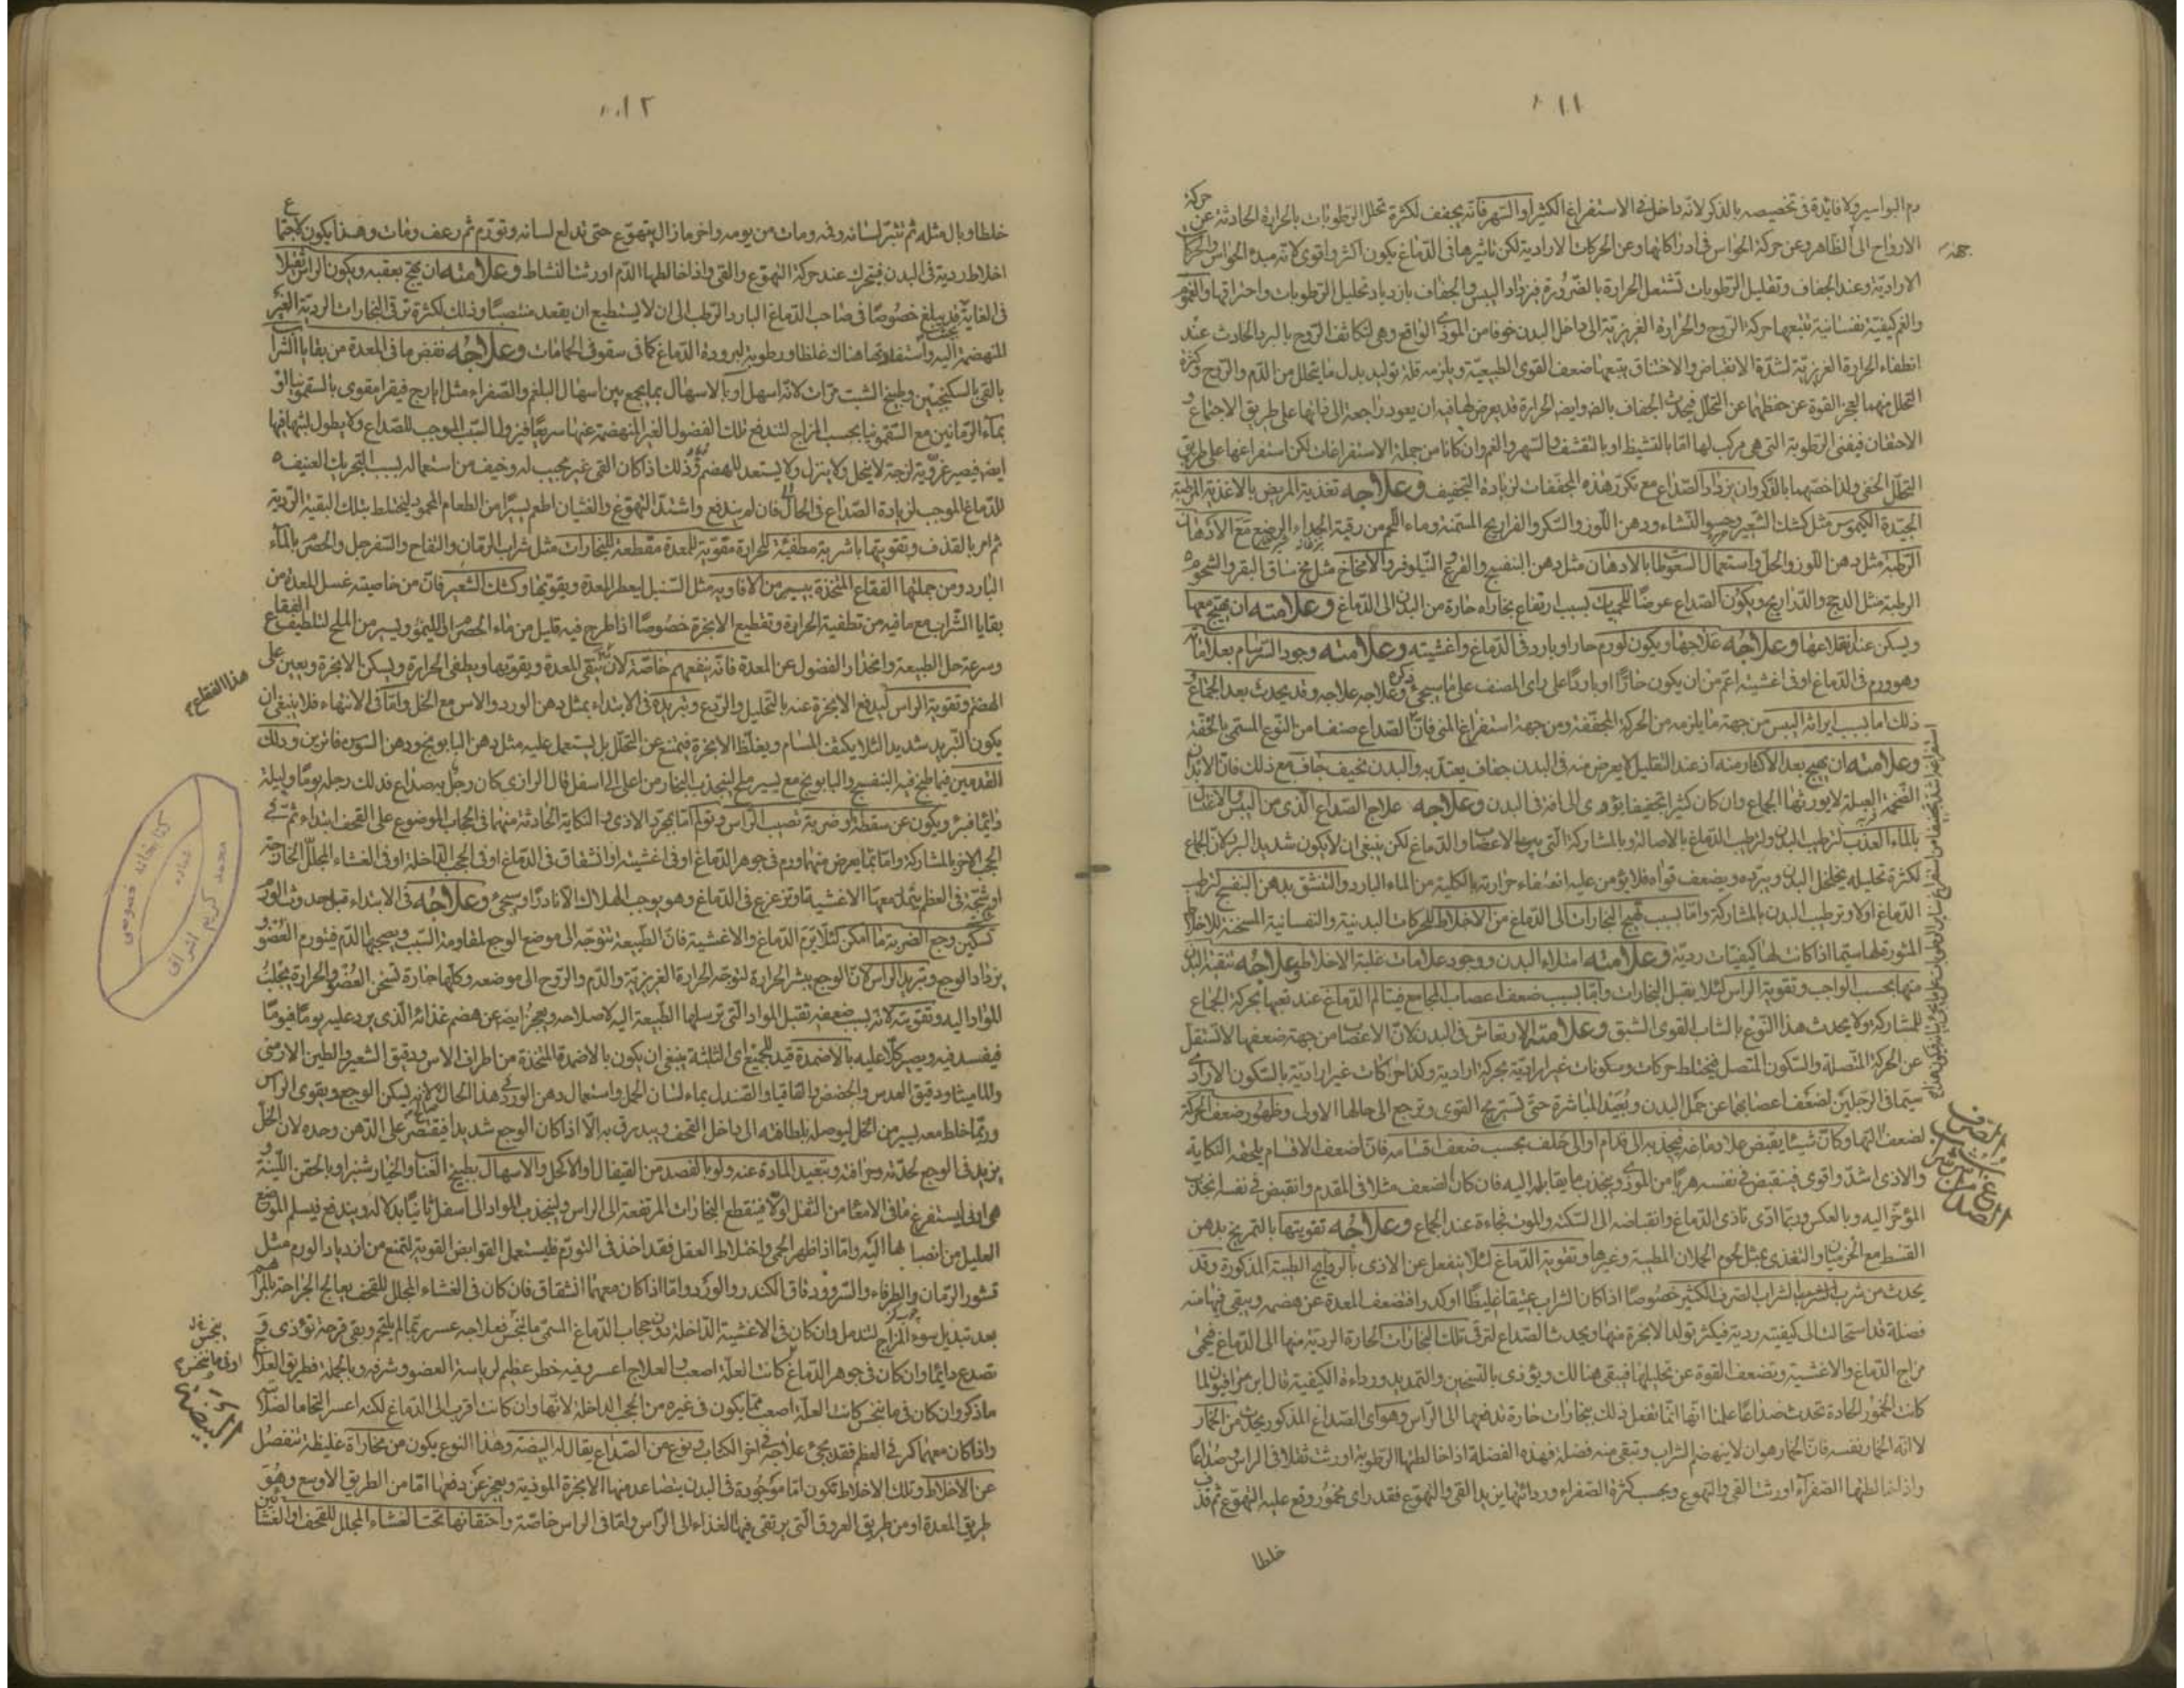 ١١
دم البواسير ولا فايدة فى تخصيصه بالذكر لانه داخل فى الاستفراغ الكثير او السهر فانه يجفف لكثرة تحلل الرطوبات بالحرارة الحادثة عن حركة
الارواح الى الظاهر وعن حركة الحواس فى ادراكاتها وعن الحركات الارادية لكن تاثيرها فى الدماغ يكون اكثر واقوى لانه مبدء الحواس والحركات
الارادية وعند الجفاف وتقليل الرطوبات تشتعل الحرارة بالضرورة فيزداد اليبس والجفاف بازدياد تحليل الرطوبات واحتراقها والغم
والغم كيفية نفسانية تتبعها حركة الروح والحرارة الغريزية الى داخل البدن خوفا من الموذى الواقع وهى لتكاثف الروح بالبرد الحادث عند
انطفاء الحرارة الغريزية لشدة الانقباض والاختناق يتبعها ضعف القوى الطبيعية ويلزمه قلة توليد بدل ما يتحلل من الدم والروح وكثرة
التحلل منهما لعجز القوة عن حفظهما عن التحلل فيحدث الجفاف وايضا الحرارة قد يعرض لها فيه ان يعود راجعة الى ذاتها على طريق الاجتماع و
الاحتقان فيفنى الرطوبة التى هى مركب لها اما بالتنشيط او بالنشف والسهر والغم وان كانا من جملة الاستفراغات لكن استفراغها على طريق
التحلل الخفى ولذا خصهما بالذكر وان يزداد الصداع مع تكرر هذه المجففات لزيادة التجفيف وعلاجه تغذية المريض بالاغذية المرطبة
الجيدة الكيموس مثل كشك الشعير وحسو النشاء ودهن اللوز والسكر والفراريج المسمنة وماء اللحم من رقبة الجداء الرضيع مع الادهان
الرطبة مثل دهن اللوز والحل واستعمال السعوطا بالادهان مثل دهن البنفسج والقرع والنيلوفر والامخاخ مثل مخ ساق البقر والشحوم
الرطبة مثل الدجج والتذاريج ويكون الصداع عرضا للحميات بسبب ارتفاع بخارات حارة من البدن الى الدماغ وعلامته ان يهيج معها
ويسكن عند اقلاعها وعلاجه علاجها ويكون لورم حار او بارد فى الدماغ واغشيته وعلامته وجود السرسام بعلاماته
وهو ورم فى الدماغ او فى اغشيته اعم من ان يكون حارا او باردا على راى المصنف على ما سيجئ ذكره وعلاجه علاجه وقد يحدث بعد الجماع و
ذلك اما بسبب ايراثه اليبس من جهة ما يلزمه من الحركة المجففة ومن جهة استفراغ المنى فان الصداع صنف من النوع المسمى بالخفة
وعلامته ان يهيج بعد الاكثار منه اذ عند التقليل لا يعرض منه فى البدن جفاف يعتد به والبدن نحيف جاف مع ذلك فان الابدان
الضخمة العبلة لا يورثها الجماع وان كان كثيرا تجفيفا يؤدى الى افة فى البدن وعلاجه علاج الصداع الذى من اليبس والاغتسال
بالماء العذب لترطيب البدن ولترطيب الدماغ بالاصالة وبالمشاركة التى بين الاعضاء والدماغ لكن ينبغى ان لا يكون شديد البرد لان الجماع
لكثرة تحليله يخلخل البدن ويبرده ويضعف قواه فلا يؤمن عليه انطفاء حرارته بالكلية من الماء البارد والتنشق بدهن البنفسج لترطيب
الدماغ اولا وترطيب البدن بالمشاركة واما بسبب تهيج البخارات الى الدماغ من الاخلاط للحركات البدنية والنفسانية المسخنة للاخلاط
المثورة لها سيما اذا كانت لها كيفيات ردية وعلامته امتلاء البدن ووجود علامات غلبة الاخلاط وعلاجه تنقية البدن
منها بحسب الواجب وتقوية الراس لئلا يقبل البخارات واما بسبب ضعف اعصاب المجامع فيتالم الدماغ عند تعبها بحركة الجماع
للمشاركة ولا يحدث هذا النوع بالشاب القوى الشبق وعلامته الارتعاش فى البدن لان الاعصاب من جهة ضعفها لا تستقل
عن الحركة المتصلة والسكون المتصل فيختلط حركات وسكونات غير ارادية بحركة ارادية وكذا حركات غير ارادية بالسكون الارادى
سيما فى الرجلين لضعف اعصابهما عن حمل البدن وبعيد المباشرة حتى تستريح القوى وترجع الى حالها الاولى وظهور ضعف الحركة
لضعف التها وكان شيئا يقبض على دماغه فيجذبه الى قدام او الى خلف بحسب ضعف اقسامه فان اضعف الاقسام يلحقه النكاية
والاذى اشد واقوى فينقبض فى نفسه هربا من الموذى وينجذب ما يقابله اليه فان كان الضعف مثلا فى المقدم وانقبض فى نفسه انجذب
المؤخر اليه وبالعكس وربما ادى تاذى الدماغ وانقباضه الى السكتة والموت فجاءة عند الجماع وعلاجه تقويتها بالتمريخ بدهن
القسط مع الخزميان والتغذى بمثل لحوم الحملان المطيبة وغيرها وتقوية الدماغ لئلا ينفعل عن الاذى بالروايح الطيبة المذكورة وقد
يحدث من شرب الشراب الصرف الكثير خصوصا اذا كان الشراب عتيقا غليظا اوكد وافتضعف المعدة عن هضمه ويبقى فيها منه
فضلة قد استحالت الى كيفية ردية فيكثر تولد الابخرة منها ويحدث الصداع لترقى تلك البخارات الحارة الردية منها الى الدماغ فيحمى
مزاج الدماغ والاغشية وتضعف القوة عن تحليلها فيبقى هنالك ويؤذى بالتسخين والتمديد ورداءة الكيفية قال ابن سرافيون لما
كانت الخمور الحادة تحدث صداعا علمنا انها انما تفعل ذلك ببخارات حارة تدفعها الى الراس وهو اى الصداع المذكور يحدث من الخمار
لا انه الخمار نفسه فان الخمار هو ان لا ينهضم الشراب وتبقى منه فضلة فهذه الفضلة اذا خالطتها الرطوبة اورثت ثقلا فى الراس وصداعا
واذا خالطتها الصفراء اورثت القى والتهوع وبحسب كثرة الصفراء وردائتها يزيد القى والتهوع فقد راى مخمور وقع عليه التهوع ثم قذف
خلطا
جهة
الصداع من شراب الصرف
١٢
خلطا وبال مثله ثم تبثر لسانه وفمه ومات من يومه واخر ما زال يتهوع حتى تدلع لسانه وتورم ثم رعف ومات وهذا يكون لاجتماع
اخلاط ردية فى البدن فيتحرك عند حركة التهوع والقى واذا خالطها الدم اورثت النشاط وعلامته ان يهيج بعقبه ويكون الراس ثقيلا
فى الغاية قد يبلغ خصوصا فى صاحب الدماغ البارد الرطب الى ان لا يستطيع ان يقعد منتصبا وذلك لكثرة ترقى البخارات الردية الغير
المنهضمة اليه واستفادتها هناك غلظا ورطوبة لبرودة الدماغ كما فى سقوف الحمامات وعلاجه نفض ما فى المعدة من بقايا الشراب
بالقى بالسكنجبين وطبيخ الشبت مرات لانه اسهل او بالاسهال بما يجمع بين اسهال البلغم والصفراء مثل ايارج فيقرا مقوى بالسقمونيا او
بماء الرمانين مع السقمونيا بحسب المزاج لتندفع تلك الفضول الغير المنهضمة عنها سريعا فيزول السبب الموجب للصداع ولا يطول لبثها فيها
ايضا فيصير غروية لزجة لا ينحل ولا ينزل ولا يستعد للهضم وذلك اذا كان القى غير مجيب له وخيف من استعماله لسبب التحريك العنيف
للدماغ الموجب لزيادة الصداع فى الحال فان لم يندفع واشتد التهوع والغثيان اطعم يسيرا من الطعام المحمود ليختلط بتلك البقية الردية
ثم امر بالقذف وتقويتها باشربة مطفئة للحرارة مقوية للمعدة مقطعة للبخارات مثل شراب الرمان والتفاح والسفرجل والحصرم بالماء
البارد ومن جملتها الفقاع المتخذة بيسير من الافاويه مثل السنبل ليعطر المعدة ويقويها وكشك الشعير فان من خاصيته غسل المعدة من
بقايا الشراب مع ما فيه من تطفية الحرارة وتقطيع الابخرة خصوصا اذا طرح فيه قليل من ماء الحصرم او الليمو ويسير من الملح لتلطيف الفقاع
وسرعة حل الطبيعة وانحدار الفضول عن المعدة فانه ينفعهم خاصة لانه ينقى المعدة ويقويها ويطفى الحرارة ويسكن الابخرة ويعين على
الهضم وتقوية الراس ليدفع الابخرة عنه بالتحليل والردع وتبريده فى الابتداء بمثل دهن الورد والاس مع الخل واما فى الانتهاء فلا ينبغى ان
يكون التبريد شديدا لئلا يكثف المسام ويغلظ الابخرة فيمتنع عن التحلل بل يستعمل عليه مثل دهن البابونج ودهن السوسن فاترين ودلك
القدمين فيما طبخ فيه البنفسج والبابونج مع يسير ملح لينجذب البخار من اعلى الى اسفل قال الرازى كان رجل به صداع فدلك رجله يوما وليلة
دائما فبرئ ويكون عن سقطة او ضربة تصيب الراس وتولم اما بمجرد الاذى والنكاية الحادثة منهما فى الحجاب الموضوع على القحف ابتداء ثم فى
الحجب الاخر بالمشاركة واما بما يعرض منهما ورم فى جوهر الدماغ او فى اغشيته او انشقاق فى الدماغ او فى الحجب الداخلة او فى الغشاء المجلل الخارج
او شجة فى العظم يتالم معها الاغشية او تزعزع فى الدماغ وهو يوجب الهلاك الا نادرا وسيجئ وعلاجه فى الابتداء قبل حدوث الورم
تسكين وجع الضربة ما امكن لئلا يرم الدماغ والاغشية فان الطبيعة تتوجه الى موضع الوجع لمقاومة السبب ويصحبها الدم فيتورم العضو و
يزداد الوجع وتبريد الراس لان الوجع يثير الحرارة لتوجه الحرارة الغريزية والدم والروح الى موضعه وكلها حارة تسخن العضو والحرارة يجلب
المواد اليه وتقويته لانه بسبب ضعفه تقبل المواد التى ترسلها الطبيعة اليه لاصلاحه ويعجز ايضا عن هضم غذائه الذى يرد عليه يوما فيوما
فيفسد فيه ويصير كلا عليه بالاضمدة قيد للجميع اى الثلثة ينبغى ان يكون بالاضمدة المتخذة من اطراف الاس ودقيق الشعير والطين الارمنى
والماميثا ودقيق العدس والحضض والقاقيا والصندل بماء لسان الحمل واستعمال دهن الورد فى هذا الحال صالح لانه يسكن الوجع ويقوى الراس
وربما خلط معه يسير من الخل ليوصله بلطافته الى داخل القحف ويبذرق به الا اذا كان الوجع شديدا فيقتصر على الدهن وحده لان الخل
يزيد فى الوجع لحدته وحرافته وتبعيد المادة عنه ولو بالفصد من القيفال او الاكحل والاسهال بطبيخ العناب والخيار شنبر او بالحقن اللينة
هى اولى ليستفرغ ما فى الامعاء من الثفل اولا فينقطع البخارات المرتفعة الى الراس ولينجذب المواد الى اسفل ثانيا بدلا له ويندفع فيسلم الموضع
العليل من انصبابها اليه واما اذا ظهر الحمى واختلاط العقل فقد اخذ فى التورم فليستعمل القوابض القوية لتمنع من ازدياد الورم مثل
قشور الرمان والطرفاء والسرو ودقاق الكندر والورد واما اذا كان معهما انشقاق فان كان فى الغشاء المجلل للقحف يعالج الجراحة بالمراهم
بعد تبديل سوء المزاج لتندمل وان كان فى الاغشية الداخلة دون حجاب الدماغ المسمى مانخس فعلاجه عسر ربما لم يلتحم ويبقى قرحة تؤذى و
تصدع دايما وان كان فى جوهر الدماغ كانت العلة اصعب والعلاج اعسر وفيه خطر عظيم لرياسة العضو وشرفه وبالجملة فطريق العلاج
ما ذكر وان كان فى مانخس كانت العلة اصعب مما يكون فى غيره من الحجب الداخلة لانها وان كانت اقرب الى الدماغ لكنه اعسر التحاما لصلابته
واذا كان معهما كسر فى العظم فقد يجئ علاجه فى اخر الكتاب ونوع من الصداع يقال له البيضة وهذا النوع يكون من بخارات غليظة تنفصل
عن الاخلاط وتلك الاخلاط تكون اما موجودة فى البدن يتصاعد منها الابخرة الموذية ويعجز عن دفعها اما من الطريق الاوسع وهو
طريق المعدة او من طريق العروق التى يرتقى فيها الغذاء الى الراس واما فى الراس خاصة واحتقانها تحت الغشاء المجلل للقحف او الغشاء
هذا الفقاع
البيضة
كتابخانه خصوصى
محمد كريم اشراق